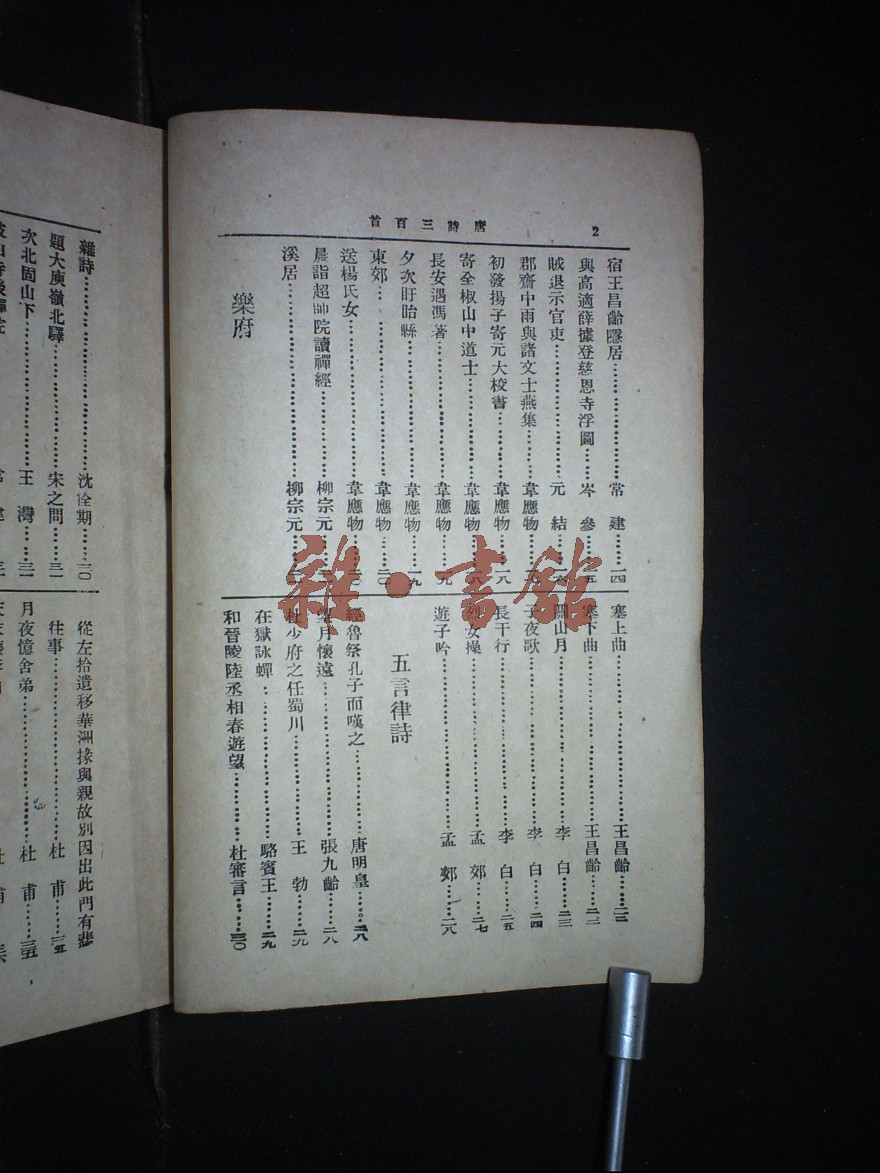 唐詩三百首
2
宿王昌齡隱居……常建……一四
與高適薛據登慈恩寺浮圖……岑參……一五
賊退示官吏……元結……一六
郡齋中雨與諸文士燕集……韋應物
初發揚子寄元大校書……韋應物……一八
寄全椒山中道士……韋應物……一八
長安遇馮著……韋應物……一九
夕次盱眙縣……韋應物……一九
東郊……韋應物……二〇
送楊氏女……韋應物
晨詣超師院讀禪經……柳宗元
溪居……柳宗元
樂府
塞上曲……王昌齡……二二
塞下曲……王昌齡……二二
關山月……李白……二三
子夜歌……李白……二四
長干行……李白……二五
烈女操……孟郊……二七
遊子吟……孟郊……二八
五言律詩
經魯祭孔子而嘆之……唐明皇……二八
望月懷遠……張九齡……二八
杜少府之任蜀川……王勃……二九
在獄詠蟬……駱賓王……二九
和晉陵陸丞相春遊望……杜審言……三〇
雜詩……沈佺期……三〇
題大庾嶺北驛……宋之問……三一
次北固山下……王灣……三一
從左拾遺移華洲掾與親故別因出此門有悲
往事……杜甫……三五
月夜憶舍弟……杜甫……三五
雜·書館